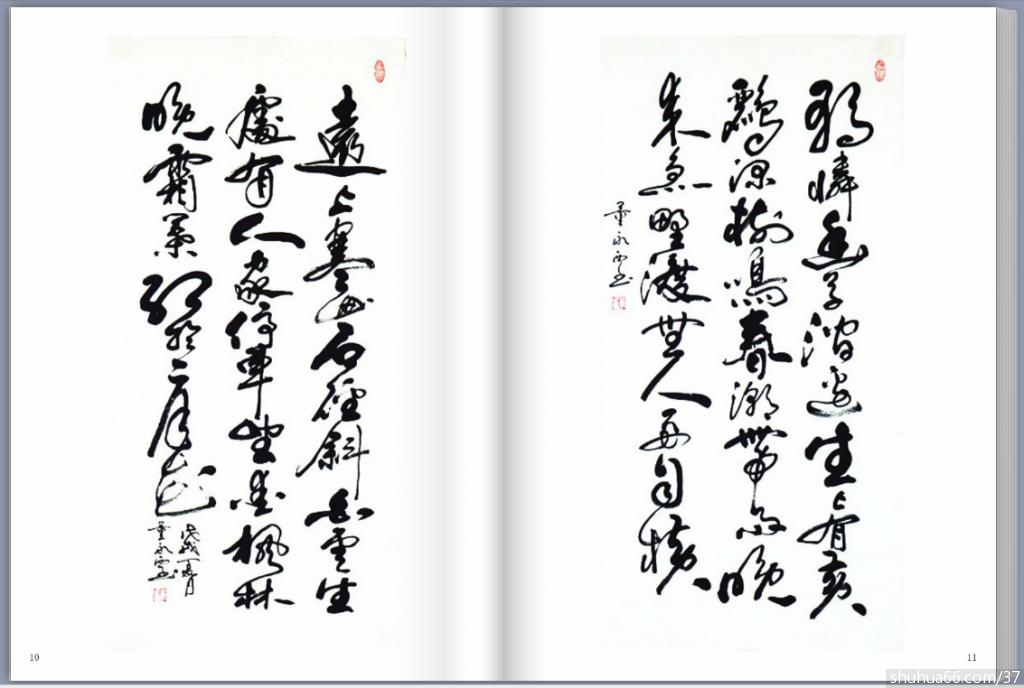 遠上寒山石徑斜白雲生
處有人家停車坐愛楓林
晚霜葉紅於二月花
戊戌夏月
董永
10
獨憐幽草澗邊生上有黃
鸝深樹鳴春潮帶雨晚
来急野渡無人舟自橫
董永
11
shuhua66.com/37